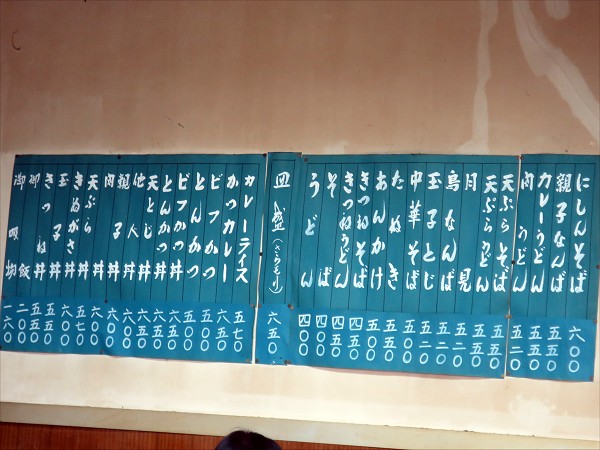 にしんそば 六〇〇
親子なんば 五五〇
カレーうどん 五五〇
肉うどん 五二〇
天ぷらそば 五五〇
天ぷらうどん 五五〇
月見 五〇〇
鳥なんば 五二〇
玉子とじ 五二〇
中華そば 五五〇
たぬき 五〇〇
あんかけ 五〇〇
きつねそば 四五〇
きつねうどん 四五〇
そば 四〇〇
うどん 四〇〇
皿盛(さらもり) 六五〇
カレーライス 五七〇
かつカレー 六五〇
ビフかつ 五〇〇
とんかつ 五〇〇
ビフかつ丼 六五〇
とんかつ丼 六五〇
天とじ丼 六五〇
他人丼 六〇〇
親子丼 六〇〇
肉丼 六〇〇
天ぷら丼 六〇〇
きぬがさ丼 五七〇
玉子丼 五五〇
きつね丼 五五〇
御飯 二〇〇
御吸物 一六〇